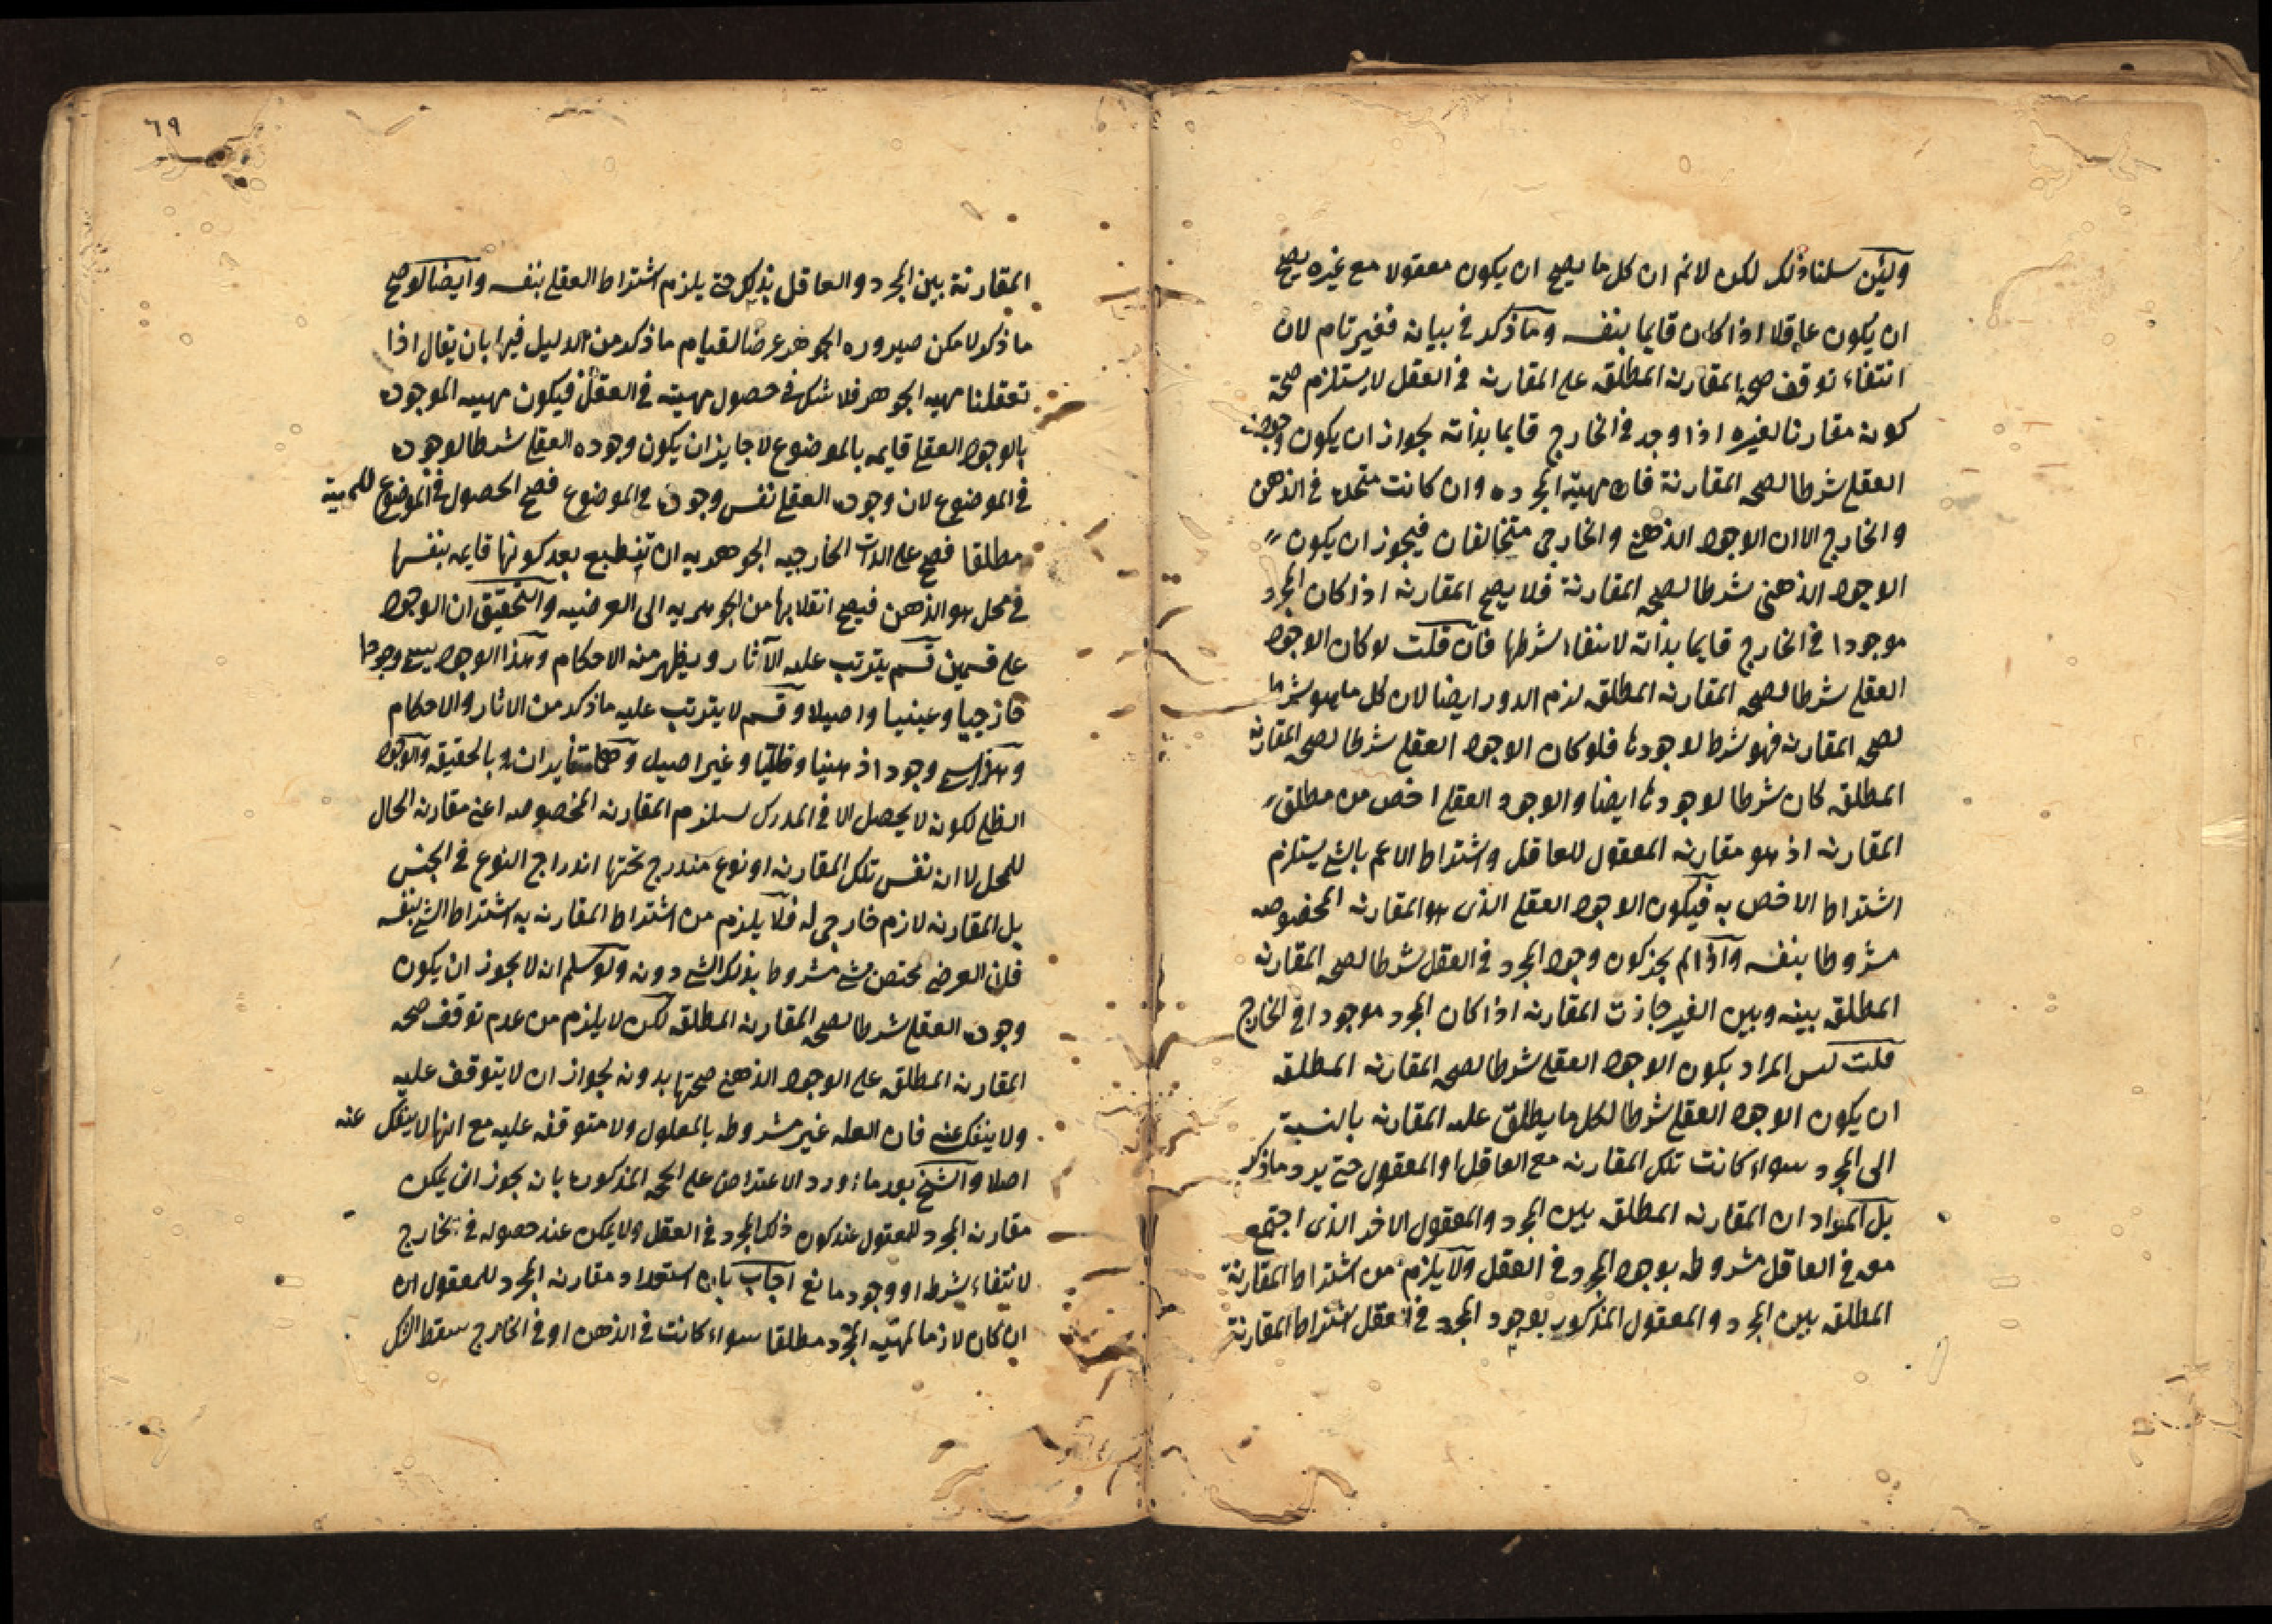 ولئن سلمنا ذلك لكن لانم ان كل ما يصح ان يكون معقولا مع غيره يصح
ان يكون عاقلا اذا كان قايما بنفسه وما ذكر في بيانه فغير تام لان
انتفاء توقف صحة المقارنة المطلقه على المقارنه في العقل لا يستلزم صحة
كونه مقارنا لغيره اذا وجد في الخارج قايما بذاته لجواز ان يكون وجوده
العقلي شرطا لصحه المقارنة فان مهيته المجرده وان كانت متحده في الذهن
والخارج الا ان الوجود الذهني والخارجي متخالفان فيجوز ان يكون
الوجود الذهني شرطا لصحه المقارنة فلا يصح المقارنه اذا كان المجرد
موجودا في الخارج قايما بذاته لانتفاء شرطها فان قلت لو كان الوجود
العقلي شرطا لصحه المقارنه المطلقه لزم الدور ايضا لان كل ما هو شرط
لصحه المقارنه فهو شرط لوجودها فلو كان الوجود العقلي شرطا لصحه المقارنه
المطلقه كان شرطا لوجودها ايضا والوجود العقلي اخص من مطلق
المقارنه اذ هو مقارنه المعقول للعاقل واشتراط الاعم بالشي يستلزم
اشتراط الاخص به فيكون الوجود العقلي الذى هو المقارنه المخصوصه
مشروطا بنفسه واذا لم يجز كون وجود المجرد في العقل شرطا لصحه المقارنه
المطلقه بينه وبين الغير جازت المقارنه اذا كان المجرد موجودا في الخارج
قلت ليس المراد بكون الوجود العقلي شرطا لصحه المقارنه المطلقه
ان يكون الوجود العقلي شرطا لكل ما يطلق عليه المقارنه بالنسبة
الى المجرد سواء كانت تلك المقارنه مع العاقل او المعقول حتى يرد ما ذكر
بل المراد ان المقارنه المطلقه بين المجرد والمعقول الاخر الذى اجتمع
معه في العاقل مشروطه بوجود المجرد في العقل ولا يلزم من اشتراط المقارنة
المطلقه بين المجرد والمعقول المذكور بوجود المجرد في العقل اشتراط المقارنة
٦٩
المقارنة بين المجرد والعاقل بذلك حتى يلزم اشتراط العقلي بنفسه وايضا لو صح
ما ذكر لامكن صيروره الجوهر عرضا لقيام ما ذكر من الدليل فيها بان يقال اذا
تعقلنا مهيه الجوهر فلا شك في حصول مهيته في العقل فيكون مهيه الموجود
بالوجود العقلي قايمه بالموضوع لا جايز ان يكون وجوده العقلي شرطا لوجوده
في الموضوع لان وجوده العقلي نفس وجوده في الموضوع فصح الحصول في الموضوع للمهية
مطلقا فصح على الذات الخارجيه الجوهريه ان تنطبع بعد كونها قايمه بنفسها
في محل هو الذهن فيصح انقلابها من الجوهريه الى العرضيه والتحقيق ان الوجود
على قسمين قسم يترتب عليه الآثار ويظهر منه الاحكام وهذا الوجود يسمى وجودا
خارجيا وعينيا واصيلا وقسم لا يترتب عليه ما ذكر من الاثار والاحكام
وهذا يسمى وجودا ذهنيا وظليا وغير اصيل وهما متغايران بالحقيقه والوجود
الظلي لكونه لا يحصل الا في المدرك يستلزم المقارنه المخصوصه اعني مقارنه الحال
للمحل لا انه نفس تلك المقارنه او نوع مندرج تحتها اندراج النوع في الجنس
بل المقارنه لازم خارجى له فلا يلزم من اشتراط المقارنه به اشتراط الشي بنفسه
فان العرضي مختص بشي مشروطا بذلك الشي دونه ولو سلم انه لا يجوز ان يكون
وجوده العقلي شرطا لصحه المقارنه المطلقه لكن لا يلزم من عدم توقف صحه
المقارنه المطلقه على الوجود الذهني صحتها بدونه لجواز ان لا يتوقف عليه
ولا ينفك عنه فان العله غير مشروطه بالمعلول ولا متوقفه عليه مع انها لا ينفك عنه
اصلا والشيخ بعد ما اورد الاعتراض على الحجه المذكوره بان يجوز ان يمكن
مقارنه المجرد للمعقول عند كون ذلك المجرد في العقل ولا يمكن عند حصوله في الخارج
لانتفاء شرط او وجود مانع اجاب بان استعداد مقارنه المجرد للمعقول ان
ان كان لازما لمهيته المجرد مطلقا سواء كانت في الذهن او في الخارج سقط الشك